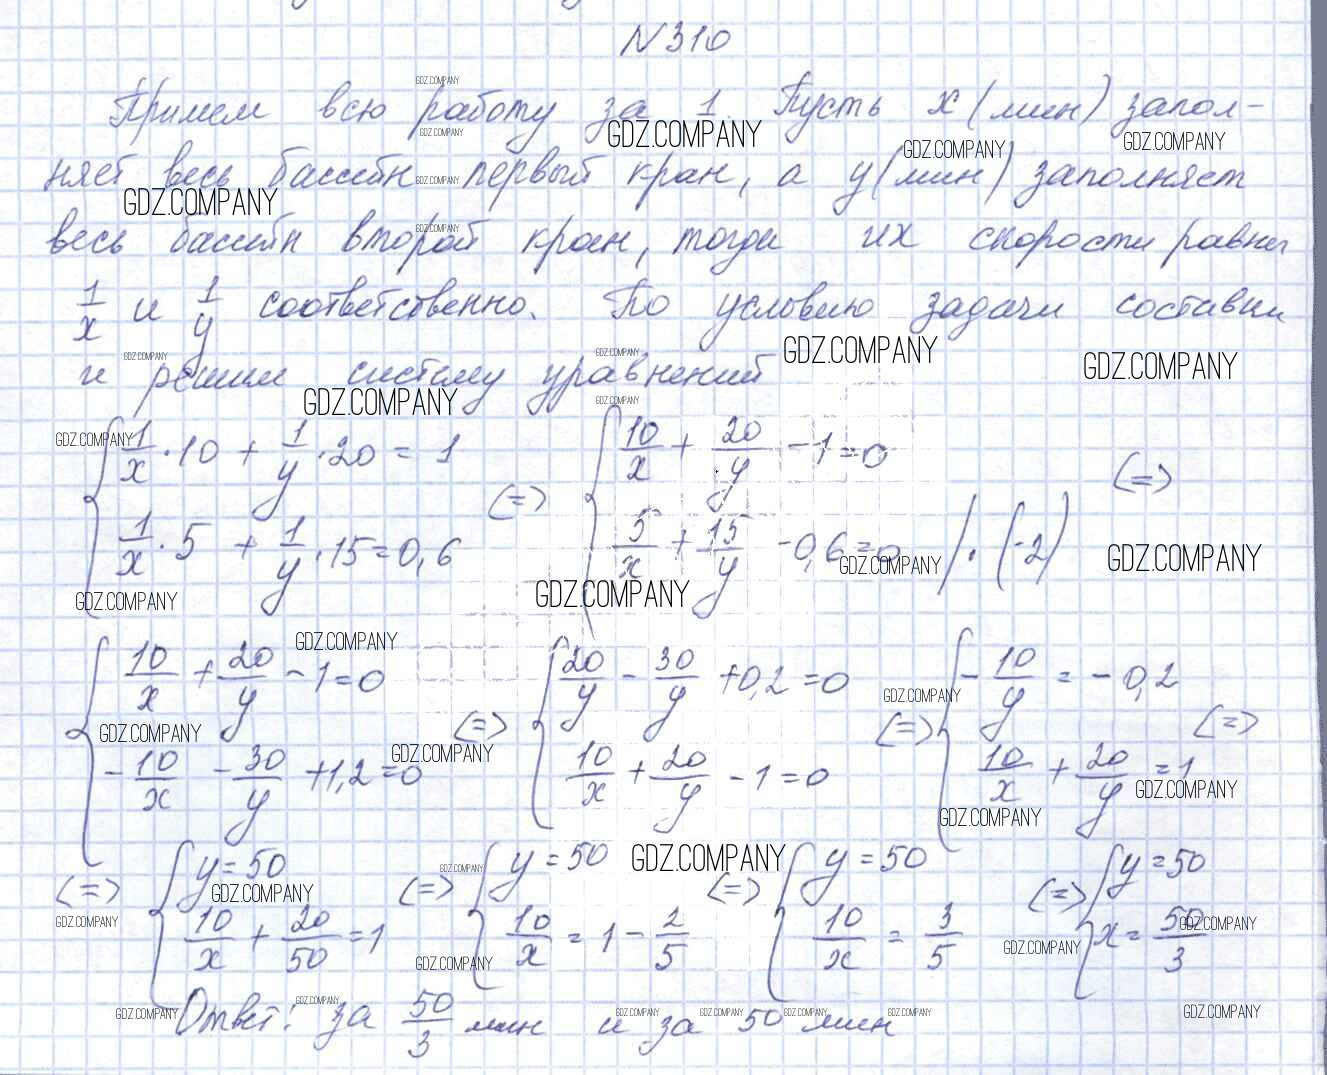 №310
Примем всю работу за 1. Пусть x (мин) запол-
няет весь бассейн первый кран, а y (мин) заполняет
весь бассейн второй кран, тогда их скорости равны
1/x и 1/y соответственно. По условию задачи составим
и решим систему уравнений
{ 1/x · 10 + 1/y · 20 = 1 (=) { 10/x + 20/y - 1 = 0 (=)
{ 1/x · 5 + 1/y · 15 = 0,6 { 5/x + 15/y - 0,6 = 0 / · (-2)
{ 10/x + 20/y - 1 = 0 (=) { 20/y - 30/y + 0,2 = 0 (=) { -10/y = -0,2 (=)
{ -10/x - 30/y + 1,2 = 0 { 10/x + 20/y - 1 = 0 { 10/x + 20/y = 1
(=) { y = 50 (=) { y = 50 (=) { y = 50 (=) { y = 50
{ 10/x + 20/50 = 1 { 10/x = 1 - 2/5 { 10/x = 3/5 { x = 50/3
Ответ: за 50/3 мин и за 50 мин
GDZ.COMPANY